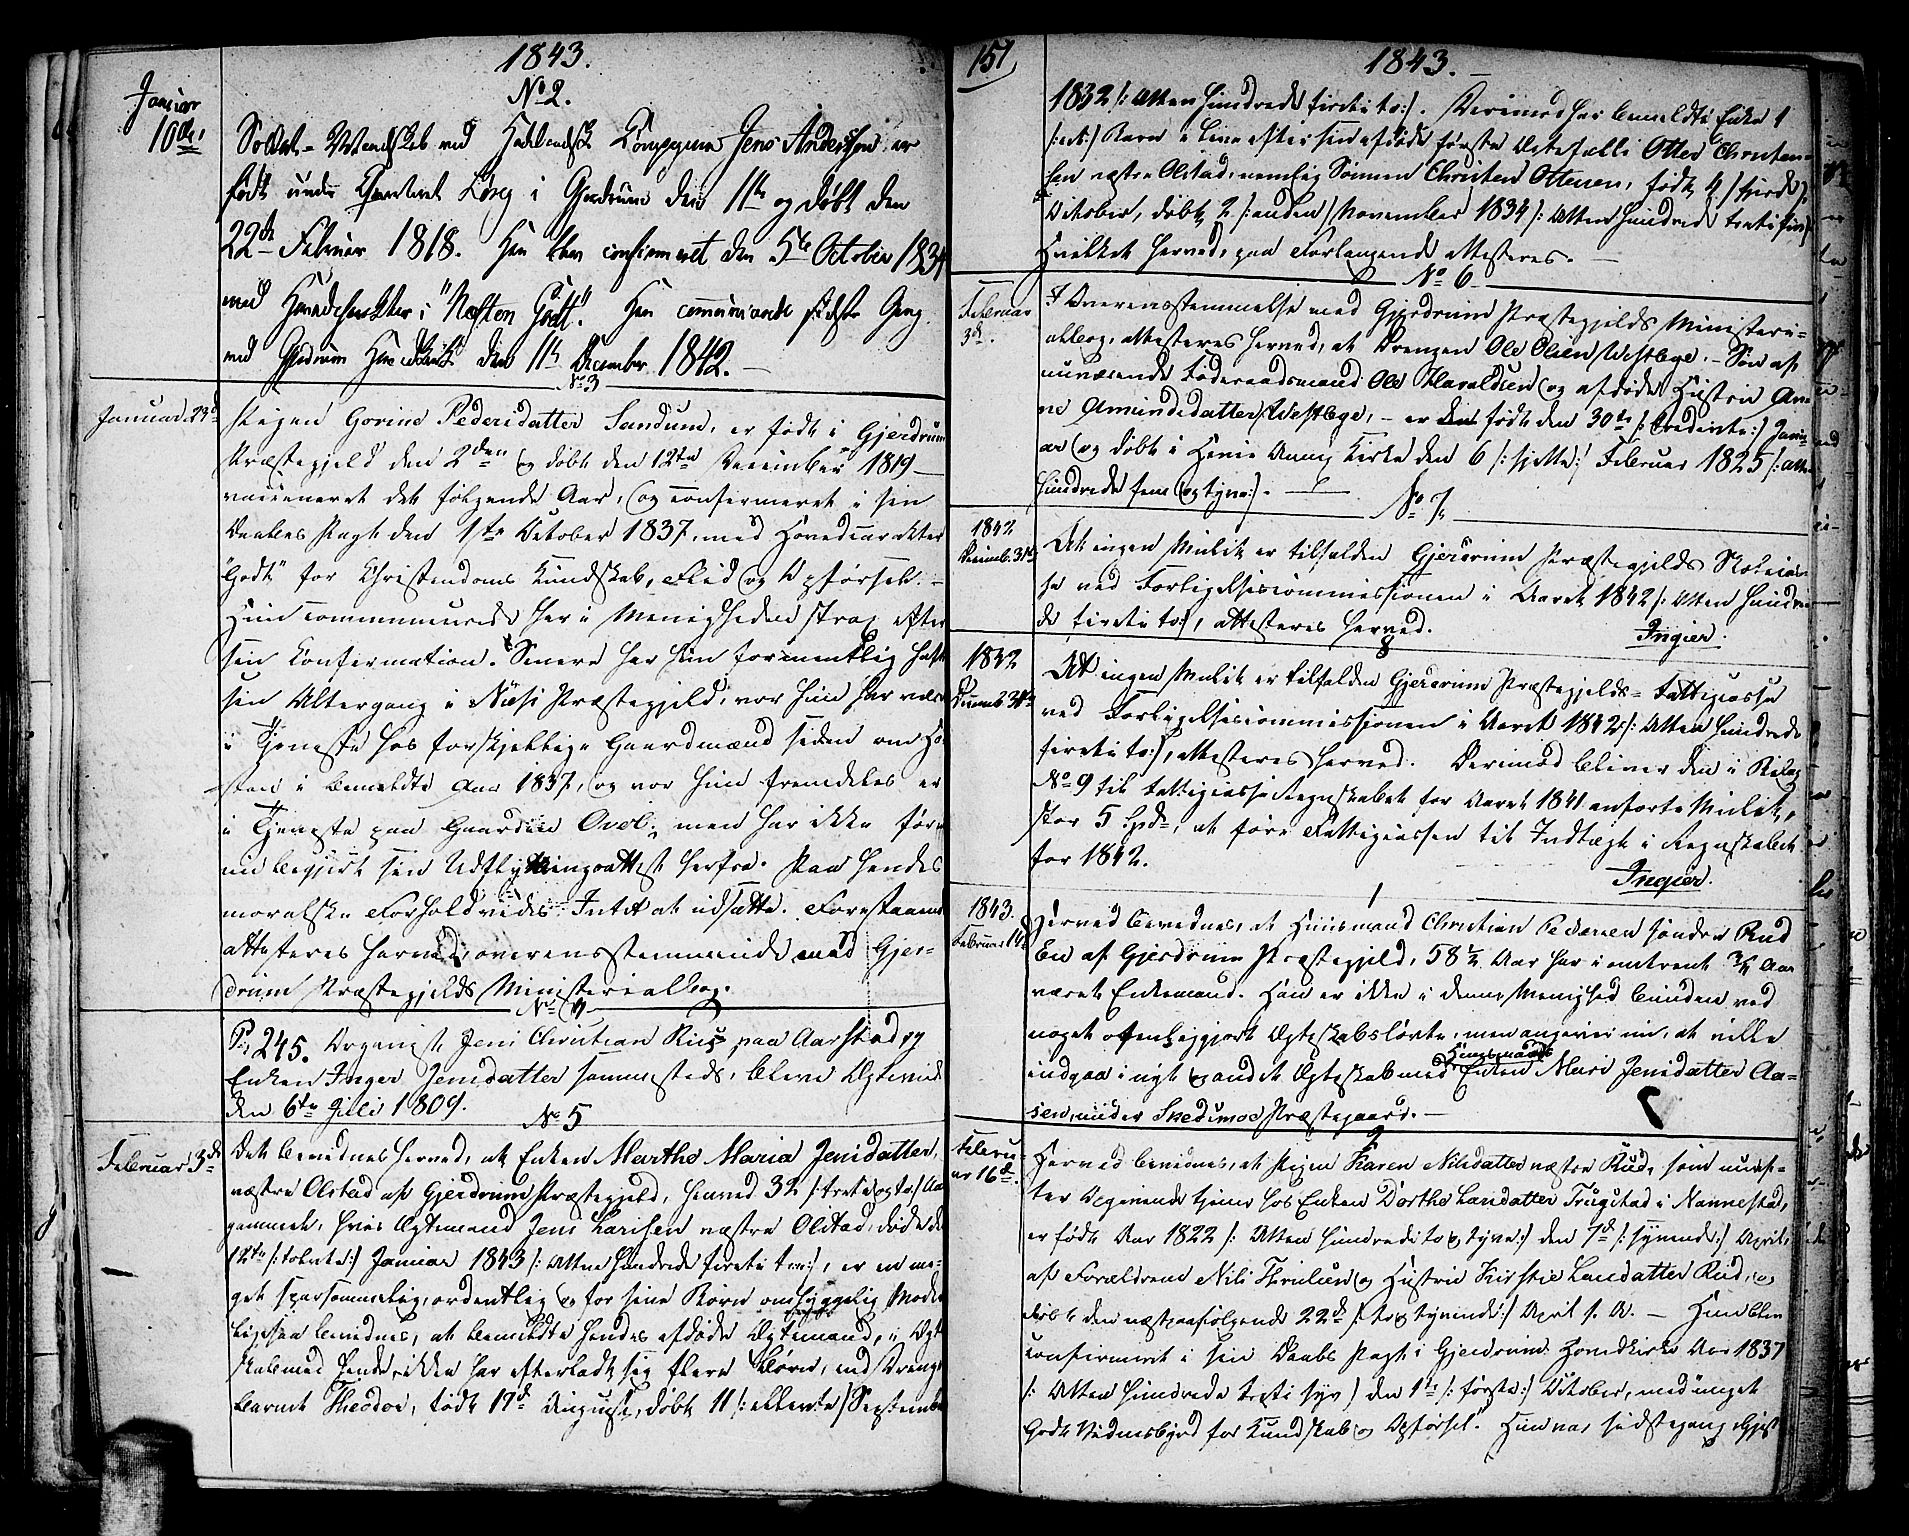 1843.
No 2.
Januar
10de
Soldat ved Compagnie Jens Anderssen er
født under i Gjerdrum den 11te og døbt den
22de Februar 1818. Han blev confirmeret den 5te October 1834
med Hovedcharakter: "Næsten Godt". Han communicerede sidste Gang
ved Gjerdrum Hovedkirke den 11te December 1842.
No 3
Januar 23d
Pigen Gorine Pedersdatter Sandum, er født i Gjerdrum
Præstegjeld den 2den og døbt den 12te December 1819
vaccineret det følgende Aar, og confirmeret i sin
Daabes Pagt den 1ste October 1837, med Hovedcarakter
"Godt" for Christendoms Kundskab, Flid og Opførsel. –
Hun communicerede her i Menigheden strax efter
sin Confirmation. Senere har hun formentlig havt
sin Altergang i Næs Præstegjeld, vor hun har været
i Tjeneste hos forskjellige Gaardmænd siden om Hø-
sten i bemeldte Aar 1837, og vor hun fremdeles er
i Tjeneste paa Gaarden men har ikke før
nu begjert sin Udflytningsattest herfra. Paa hendes
moralske Forhold vides Intet at udsætte. Forestaaende
attesteres herved, overensstemmende med Gjer-
drum Præstegjelds Ministerialbog.
No 4
Pag 245. Organist Jens Christian paa Aarstad og
Enken Inger Jensdatter sammesteds, bleve Ægteviede
den 6te Juli 1809.
No 5
Februar 3de
Det bevidnes herved, at Enken Marthe Maria Jensdatter,
næstre Olstad af Gjerdrum Præstegjeld, henved 32 /: treti og to :/ Aar
gammel, hvis Ægtemand Jens Larssen næstre Olstad, døde den
12te /: tolvte :/ Januar 1843 /: Atten Hundrede fireti tre :/, er en me-
get sparsommelig, ordentlig og for sine Børn omhyggelig Moder
ligesaa bevidnes, at bemeldte hendes afdøde Ægtemand, i Ægte-
skab med hende, ikke har efterladt sig flere Børn, end Drenge-
barnet Theodor, født 17d August, døbt 11 /: ellevte :/ September
151
1843.
1832 /: Atten Hundrede :/. Derimod har bemeldte Enke 1
/: et :/ Barn i live efter sin afdøde første Ægtefælle Otter Christen-
sen næstre Olstad, nemlig Sønnen Christen Ottersen, født 4 /: fjerde :/
October, døbt 2 /: anden :/ November 1834 /: Atten Hundrede treti fire :/
Hvilket herved, paa Forlangende attesteres. –
No 6
Februar
3d.
I Overensstemmelse med Gjerdrum Præstegjelds Ministeri-
albog, attesteres herved, at Drengen Ole Olsen Westbye, – Søn af
nuværende Føderaadsmand Ole Haraldsen og afdøde Hustru An-
ne Amundsdatter Westbye, – er født den 30te /: tredivte :/ Janu-
ar og døbt i Kirke den 6 /: sjette :/ Februar 1825 /: atten
hundrede fem og tyve :/. –
No 7
1842
Decemb. 31te
At ingen Mulct er tilfalden Gjerdrum Præstegjelds Skolecas-
se ved Forligelsescommissionen i Aaret 1842 /: Atten Hundre-
de fireti to :/, attesteres herved.
Ingier.
8
1842
Decemb 31te
At ingen Mulct er tilfalden Gjerdrum Præstegjelds Fattigcasse
ved Forligelsescommissionen i Aaret 1842 /: Atten Hundrede
fireti to :/, attesteres herved. Derimod bliver den i Bilag
No 9 til Fattigcasse Regnskabet for Aaret 1841 anførte Mulct,
stor 5 Spd, at føre Fattigcassen til Indtægt i Regnskabet
for 1842.
Ingier.
1
1843.
Februar 14
Herved bevidnes, at Huusmand Christian Pedersen søndre Rud
Eie af Gjerdrum Præstegjeld, 58 1/2 Aar har i omtrent 3/4 Aar
været Enkemand. Han er ikke i denne Menighed bunden ved
noget offentliggjort Ægteskabsløvte, men angiver nu, at ville
indgaa i nyt og andet Ægteskab med Huusmands Enken Mari Jensdatter Aa-
sen, under Skedsmoe Præstegaard. –
2
Februar 16d.
Herved bevidnes, at Pigen Karen Nilsdatter næstre Rud, som nu ef-
ter Opgivende tjener hos Enken Dorthe Larsdatter Trugstad i Nannestad,
er født Aar 1822 /: Atten Hundrede to og tyve :/ den 7d /: syvende :/ April
af Forældrene Nils Thrulsen og Hustru Kirstie Larsdatter Rud, og
døbt den næstpaafølgende 22d /: to og tyvende :/ April s. A. – Hun blev
confirmeret i sin Daabs Pagt i Gjerdrum Hovedkirke Aar 1837
/: Atten Hundrede treti syv :/ den 1ste /: første :/ October, med "meget
Godt Vidnesbyrd for Kundskab og Opførsel". Hun var sidstegang Gjest